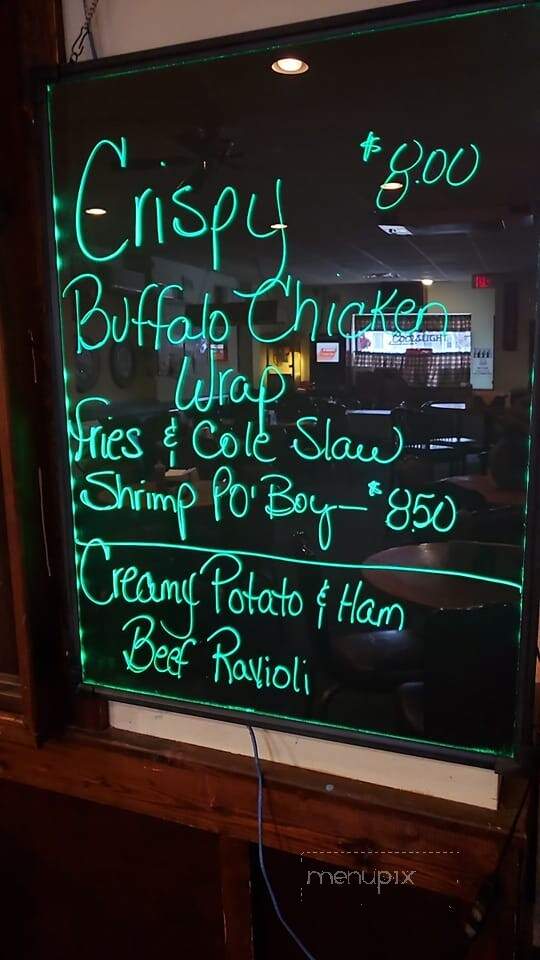 Crispy $8.00
Buffalo Chicken
Wrap
Fries & Cole Slaw
Shrimp PO' Boy — $8.50
Creamy Potato & Ham
Beef Ravioli
COORS LIGHT
menupix